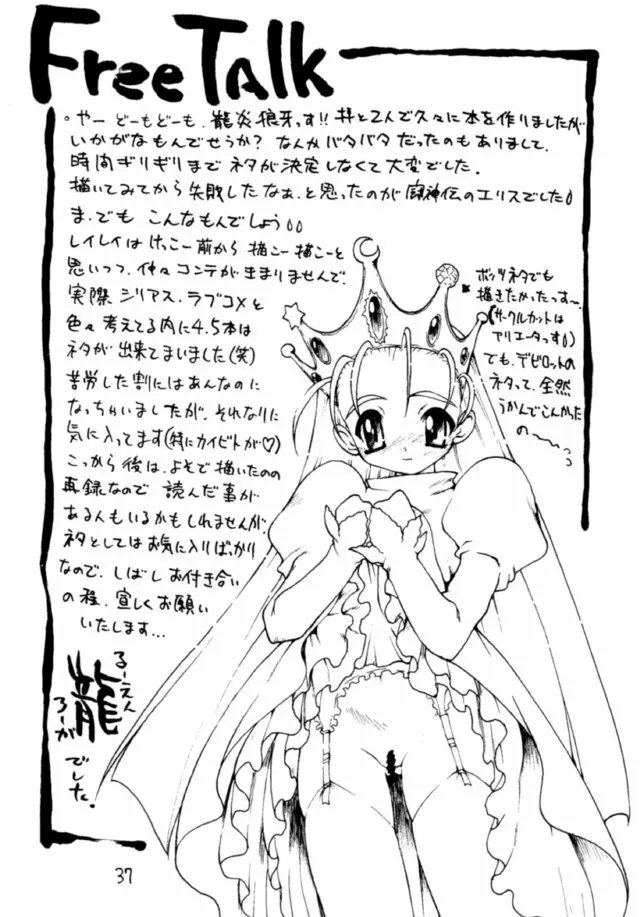 Free Talk
。やー どーもどーも、龍炎狼牙っす!! 拝と2人で久々に本を作りましたが
いかがなもんでせうか? なんかバタバタだったのもありまして、
時間ギリギリまで ネタが決定しなくて大変でした。
描いてみてから失敗したなぁ、と思ったのが 闘神伝のエリスでした
ま、でも こんなもんでしょう
レイレイは けっこー前から 描こー描こーと
思いつつ、仲々コンテがきまりませんで、
実際 シリアス、ラブコメと
色々考えてる内に 4、5本は
ネタが出来てまいました(笑)
苦労した割にはあんなのに
なっちゃいましたが、それなりに
気に入ってます(特にカイビトが♡)
こっから後は、よそで描いたのの
再録なので 読んだ事が
ある人もいるかもしれませんが、
ネタとしてはお気に入りばっかり
なので、しばし お付き合い
の程、宜しくお願い
いたします…
るーえん
龍
ろーが
でした。
ボッツネタでも
描きたかったっすー、
(サークルカットは
アリエータっす)
でも、デビロットの
ネタって、全然
うかんでこんかった
の〜〜っっ
37